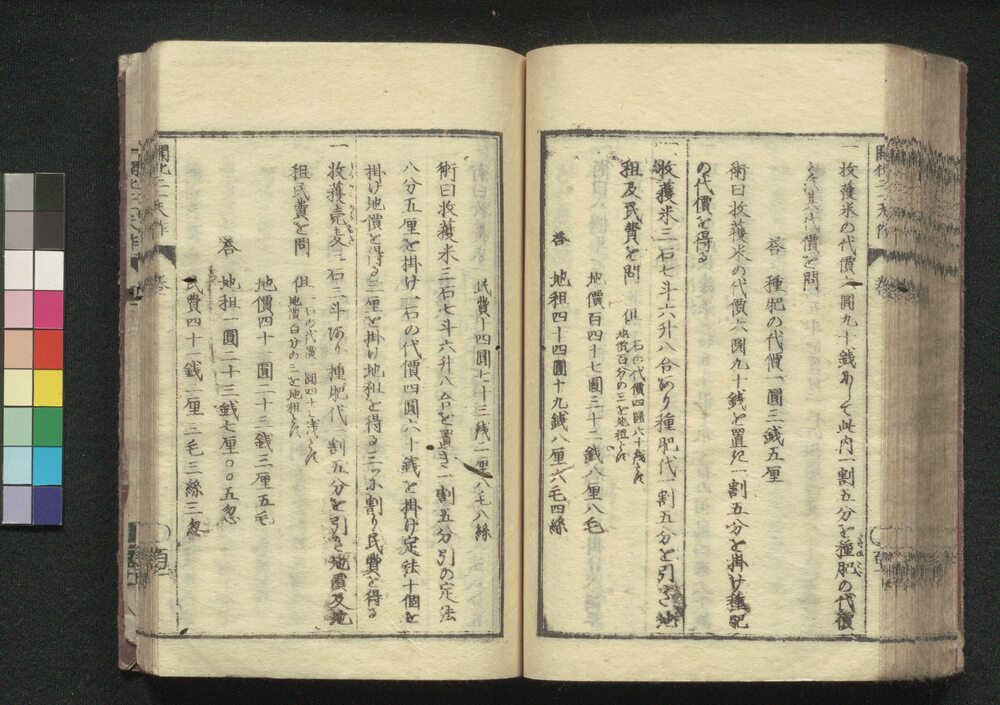 一 收穫米の代價六圓九十銭あり此内一割五分を種肥の代價
其代價を問
答 種肥の代價一圓三銭五厘
術曰收穫米の代價六圓九十銭を置一割五分を掛け種肥
の代價を得る
一 收穫米三石七斗六升八合あり種肥代一割五分を引き地
租及民費を問 但 一石の代價四圓六十銭
地價百分の三を地租
地價百四十七圓三十二銭八厘八毛
答 地租四十四圓十九銭八厘六毛四絲
民費十四圓七十三銭二厘八毛八絲
術曰收穫米三石七斗六升八合を置き一割五分引の定法
八分五厘を掛け一石の代價四圓六十銭を掛け定法十個を
掛け地價を得る三厘を掛け地租を得る三ツに割り民費を得る
一 收穫麦一石三斗あり種肥代一割五分を引き地價及地
租民費を問 但 一石の代價
地價百分の三を地租
地價四十一圓二十三銭三厘五毛
答 地租一圓二十三銭七厘〇〇五忽
民費四十一銭二厘三毛三絲三忽